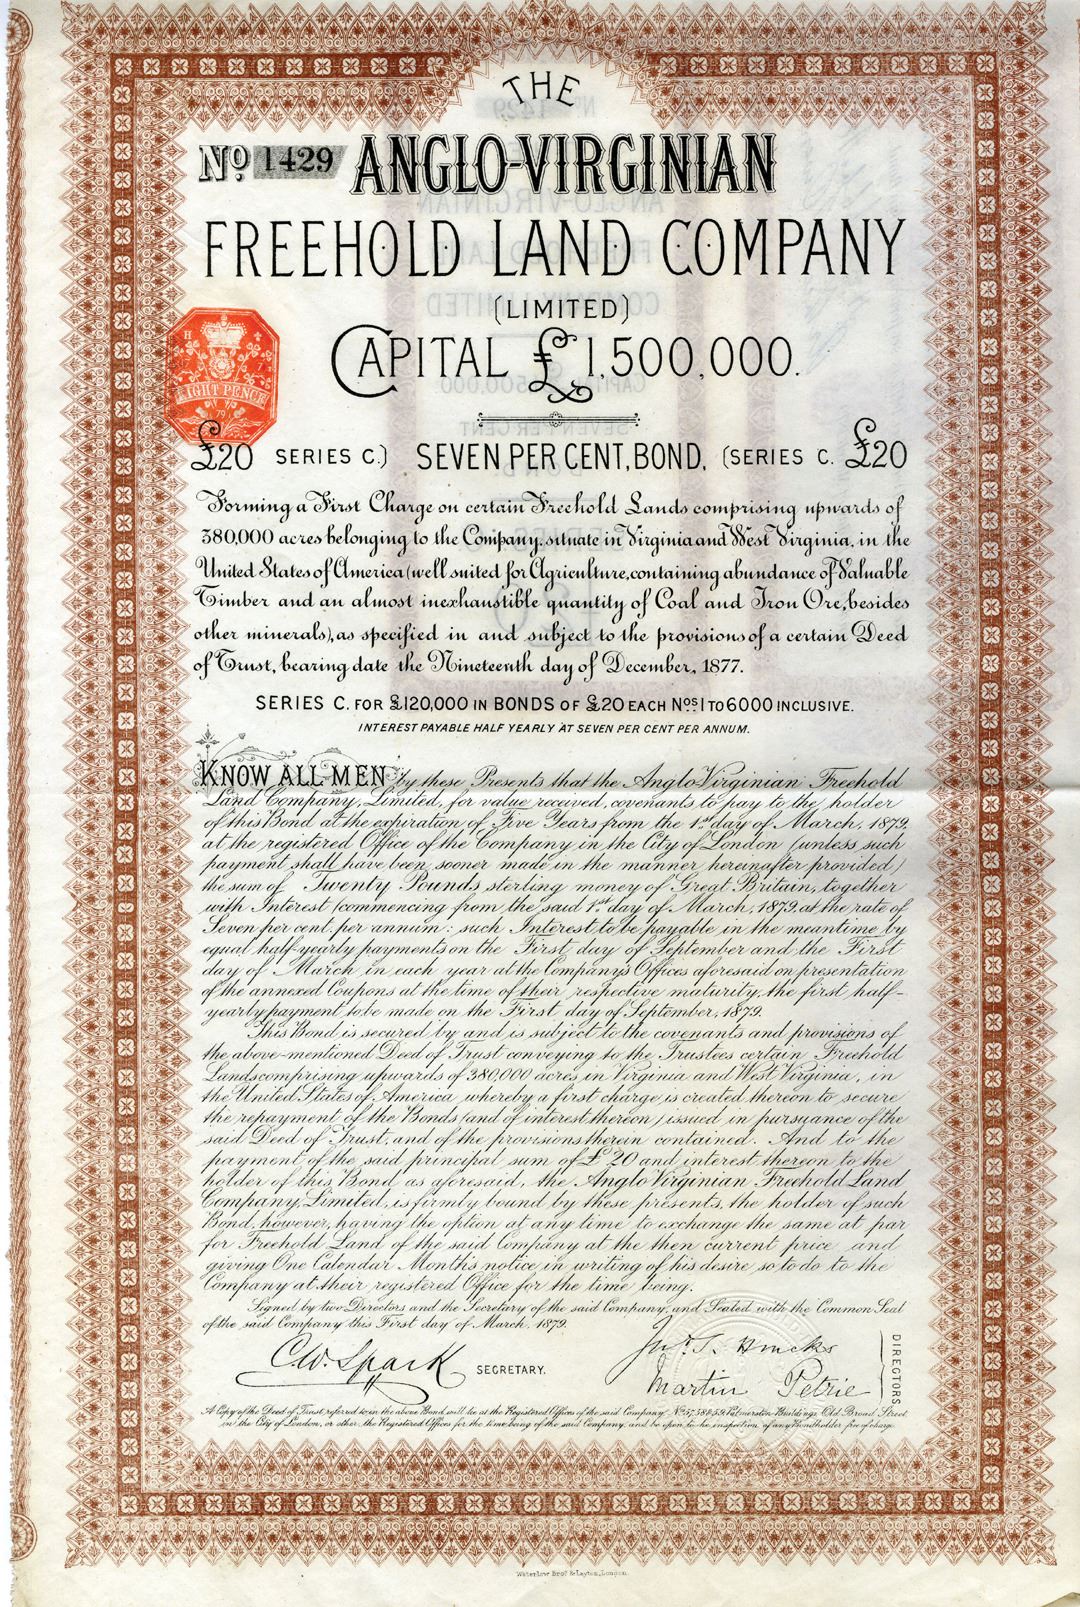 THE
No 1429 ANGLO-VIRGINIAN
FREEHOLD LAND COMPANY
(LIMITED)
CAPITAL £1,500,000.
EIGHT PENCE
£20 SERIES C.) SEVEN PER CENT, BOND, (SERIES C. £20
Forming a First Charge on certain Freehold Lands comprising upwards of
380,000 acres belonging to the Company, situate in Virginia and West Virginia, in the
United States of America (well suited for Agriculture, containing abundance of Valuable
Timber and an almost inexhaustible quantity of Coal and Iron Ore, besides
other minerals), as specified in and subject to the provisions of a certain Deed
of Trust, bearing date the Nineteenth day of December, 1877.
SERIES C. FOR £120,000 IN BONDS OF £20 EACH Nos 1 TO 6000 INCLUSIVE.
INTEREST PAYABLE HALF YEARLY AT SEVEN PER CENT PER ANNUM.
KNOW ALL MEN by these Presents that the Anglo-Virginian Freehold
Land Company, Limited, for value received, covenants to pay to the holder
of this Bond at the expiration of Five Years from the 1st day of March, 1879,
at the registered Office of the Company in the City of London (unless such
payment shall have been sooner made in the manner hereinafter provided)
the sum of Twenty Pounds sterling money of Great Britain, together
with Interest (commencing from the said 1st day of March, 1879, at the rate of
Seven per cent. per annum: such Interest to be payable in the meantime by
equal half-yearly payments on the First day of September and the First
day of March in each year at the Company's Offices aforesaid on presentation
of the annexed Coupons at the time of their respective maturity, the first half-
yearly payment to be made on the First day of September, 1879.
This Bond is secured by and is subject to the covenants and provisions of
the above-mentioned Deed of Trust conveying to the Trustees certain Freehold
Lands comprising upwards of 380,000 acres in Virginia and West Virginia, in
the United States of America, whereby a first charge is created thereon to secure
the repayment of the Bonds (and of interest thereon) issued in pursuance of the
said Deed of Trust, and of the provisions therein contained. And to the
payment of the said principal sum of £20 and interest thereon to the
holder of this Bond as aforesaid, the Anglo Virginian Freehold Land
Company, Limited, is firmly bound by these presents, the holder of such
Bond, however, having the option at any time to exchange the same at par
for Freehold Land of the said Company at the then current price and
giving One Calendar Month's notice in writing of his desire so to do to the
Company at their registered Office for the time being.
Signed by two Directors and the Secretary of the said Company, and Sealed with the Common Seal
of the said Company this First day of March, 1879.
C.W. Spark SECRETARY.
Jno. S. Hincks
Martin Petrie
DIRECTORS
A Copy of the Deed of Trust, referred to in the above Bond will lie at the Registered Office of the said Company, Nos 57, 58 & 59, Palmerston Buildings, Old Broad Street
in the City of London, or other the Registered Office for the time being of the said Company, and be open to the inspection of any Bondholder free of charge.
Waterlow Bros. & Layton, London.